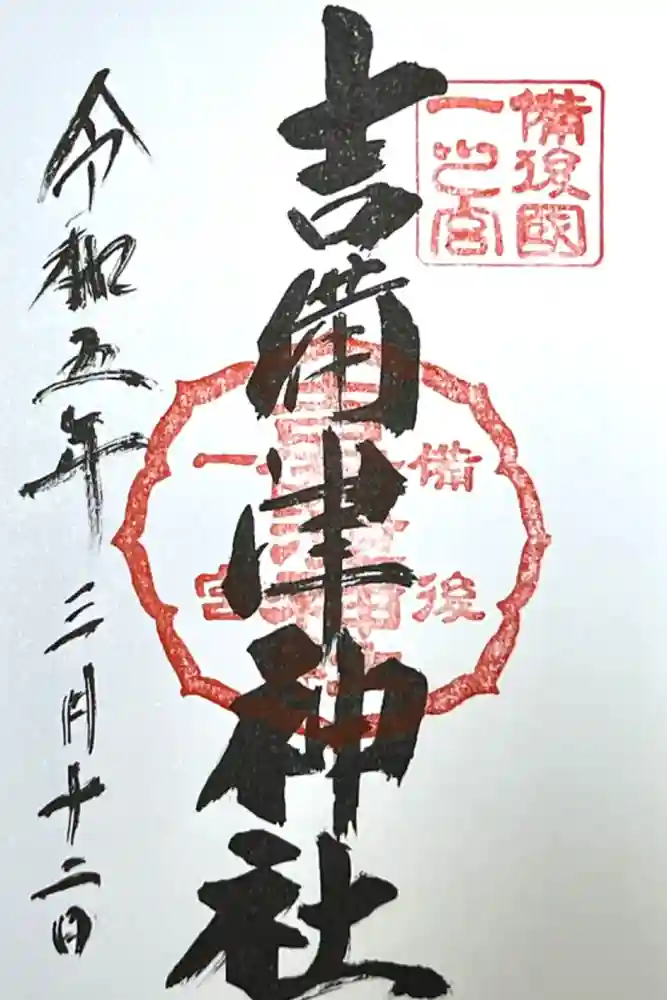 備後國
一之宮
吉備津神社
備後
一宮
令和五年三月十二日